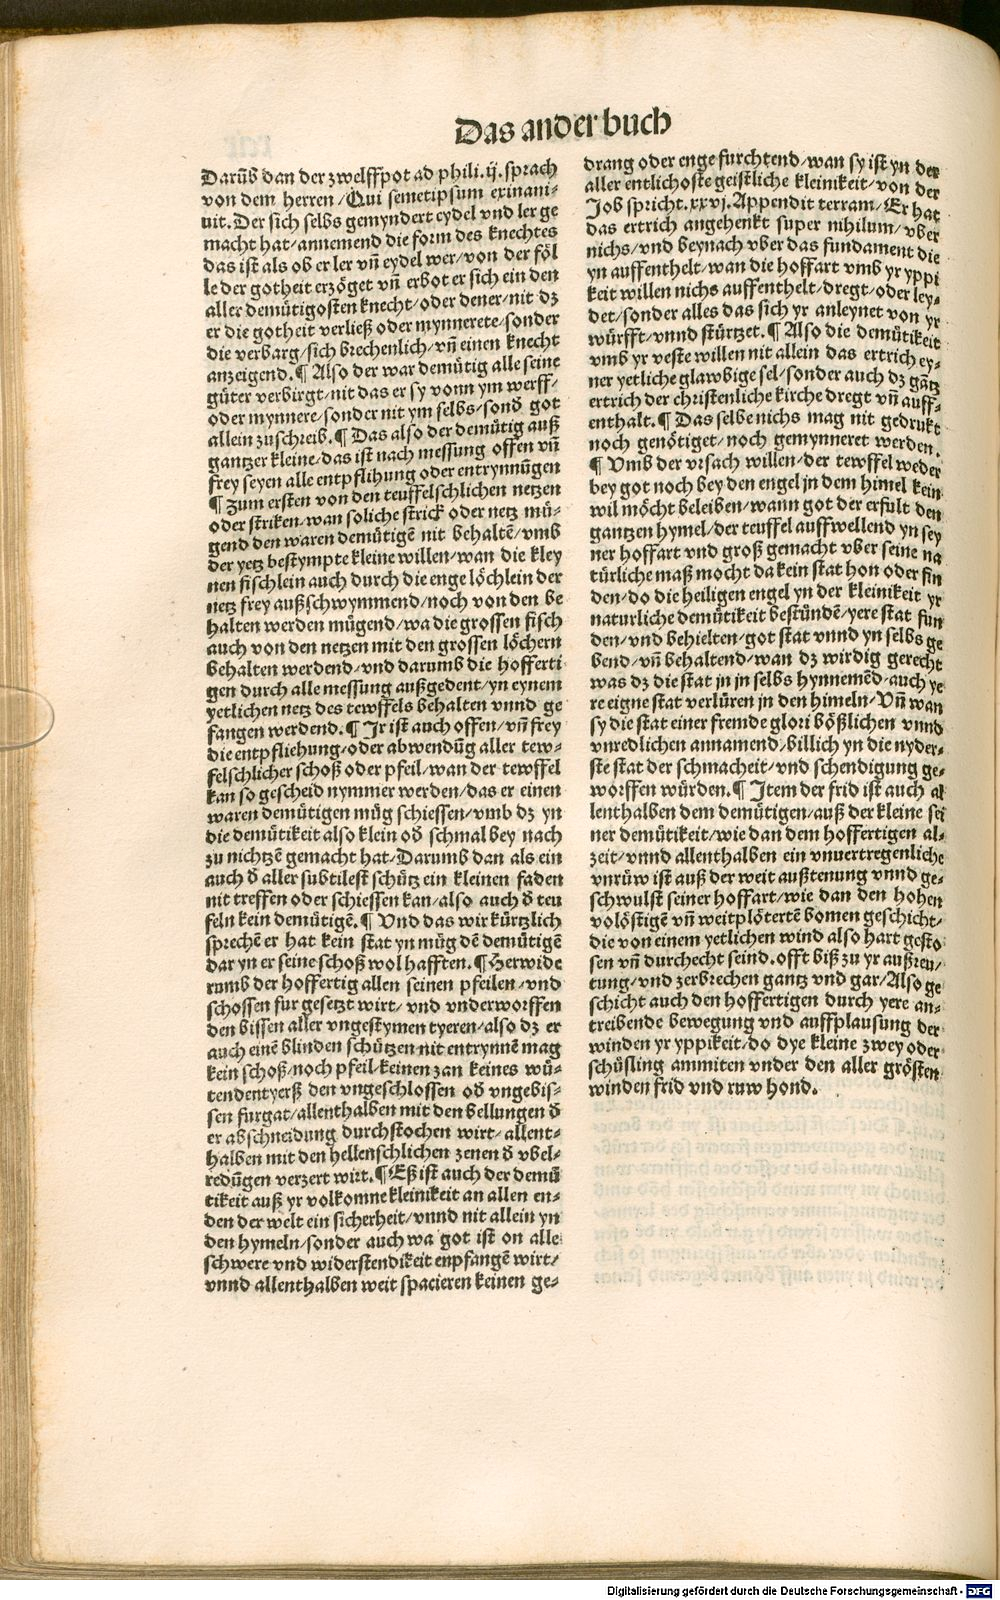 Das ander buch
Darūb dan der zwelffpot ad phili.ij.sprach
von dem herren/Qui semetipsum exinani-
uit. Der sich selbs gemyndert eydel vnd ler ge
macht hat/annemend die form des knechtes
das ist als ob er ler vñ eydel wer/von der föl
le der gotheit erzöget vñ erbot er sich ein den
aller demütigosten knecht/oder dener/nit dz
er die gotheit verließ oder mynnerete/sonder
die verbarg/sich brechenlich/vñ einen knecht
anzeigend.¶ Also der war demütig alle seine
güter verbirgt/nit das er sy vonn ym werff/
oder mynnere/sonder nit ym selbs/sonð got
allein zuschreib.¶ Das also der demütig auß
gantzer kleine/das ist nach messung offen vñ
frey seyen alle entpflihung oder entrynnūgen
¶ Zum ersten von den teuffelschlichen netzen
oder striken/wan soliche strick oder netz mü-
gend den waren demütigē nit behaltē/vmb
der yetz bestympte kleine willen/wan die kley
nen fischlein auch durch die enge löchlein der
netz frey außschwymmend/noch von den be
halten werden mügend/wa die grossen fisch
auch von den netzen mit den grossen löchern
behalten werdend/vnd darumb die hofferti
gen durch alle messung außgedent/yn eynem
yetlichen netz des tewffels behalten vnnd ge
fangen werdend.¶ Ir ist auch offen/vñ frey
die entpfliehung/oder abwendūg aller tew-
felschlicher schoß oder pfeil/wan der tewffel
kan so gescheid nymmer werden/das er einen
waren demütigen müg schiessen/vmb dz yn
die demütikeit also klein oð schmal bey nach
zu nichtzē gemacht hat/Darumb dan als ein
auch ð aller subtilest schütz ein kleinen faden
nit treffen oder schiessen kan/also auch ð teu
feln kein demütigē.¶ Vnd das wir kürtzlich
sprechē er hat kein stat yn müg dē demütigē
dar yn er seine schoß wol hafften.¶ Herwide
rumb der hoffertig allen seinen pfeilen/vnd
schossen fur gesetzt wirt/vnd vnderworffen
den bissen aller vngestymen tyeren/also dz er
auch einē blinden schützen nit entrynnē mag
kein schoß/noch pfeil/keinen zan keines wü-
tendentyerß den vngeschlossen oð vngebis-
sen furgat/allenthalben mit den bellungen ð
er abschneidung durchstochen wirt/allent-
halben mit den hellenschlichen zenen ð vbel-
redūgen verzert wirt.¶ Eß ist auch der demü
tikeit auß yr volkomne kleinikeit an allen en-
den der welt ein sicherheit/vnnd nit allein yn
den hymeln/sonder auch wa got ist on alle
schwere vnd widerstendikeit enpfangē wirt/
vnnd allenthalben weit spacieren keinen ge-
drang oder enge furchtend/wan sy ist yn der
aller entlichoste geistliche kleinikeit/von der
Job spricht.xxvj.Appendit terram/Er hat
das ertrich angehenkt super nihilum/vber
nichs/vnd beynach vber das fundament die
yn auffenthelt/wan die hoffart vmb yr yppi
keit willen nichs auffenthelt/dregt/oder ley-
det/sonder alles das sich yr anleynet von yr
würfft/vnnd stürtzet.¶ Also die demütikeit
vmb yr veste willen nit allein das ertrich ey-
ner yetliche glawbige sel/sonder auch dz gātz
ertrich der christenliche kirche dregt vñ auff-
enthalt.¶ Das selbe nichs mag nit gedrukt
noch genötiget/noch gemynneret werden.
¶ Vmb der vrsach willen/der tewffel weder
bey got noch bey den engel jn dem himel kein
wil möcht beleiben/wann got der erfult den
gantzen hymel/der teuffel auffwellend yn sey
ner hoffart vnd groß gemacht vber seine na
türliche maß mocht da kein stat hon oder fin
den/do die heiligen engel yn der kleinikeit yr
naturliche demütikeit bestündē/yere stat fun
den/vnd behielten/got stat vnnd yn selbs ge
bend/vñ behaltend/wan dz wirdig gerecht
was dz die stat jn jn selbs hynnemēd/auch ye
re eigne stat verlüren jn den himeln/Vñ wan
sy die stat einer fremde glori bößlichen vnnd
vnredlichen annamend/billich yn die nyder-
ste stat der schmacheit/vnd schendigung ge-
worffen würden.¶ Item der frid ist auch al
lenthalben dem demütigen/auß der kleine sei
ner demütikeit/wie dan dem hoffertigen al-
zeit/vnnd allenthalben ein vnuertregenliche
vnrüw ist auß der weit außtenung vnnd ge-
schwulst seiner hoffart/wie dan den hohen
volöstigē vñ weitplötertē bomen geschicht/
die von einem yetlichen wind also hart gesto
sen vñ durchecht seind.offt biß zu yr außreu/
tung/vnd zerbrechen gantz vnd gar/Also ge
schicht auch den hoffertigen durch yere an-
treibende bewegung vnd auffplausung der
winden yr yppikeit/do dye kleine zwey oder
schüsling ammiten vnder den aller grösten
winden frid vnd ruw hond.
Digitalisierung gefördert durch die Deutsche Forschungsgemeinschaft - DFG